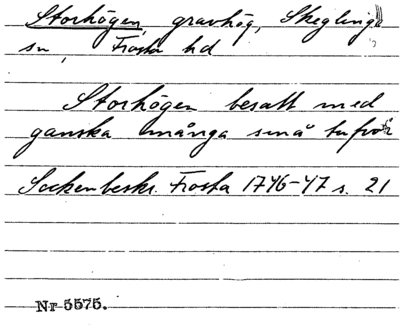 Storhögen, gravhög, Skeglinge
sn, Frosta hd
Storhögen besatt med
ganska många små tufvor
Sockenbeskr. Frosta 1746-47 s. 21
Nr 5575.